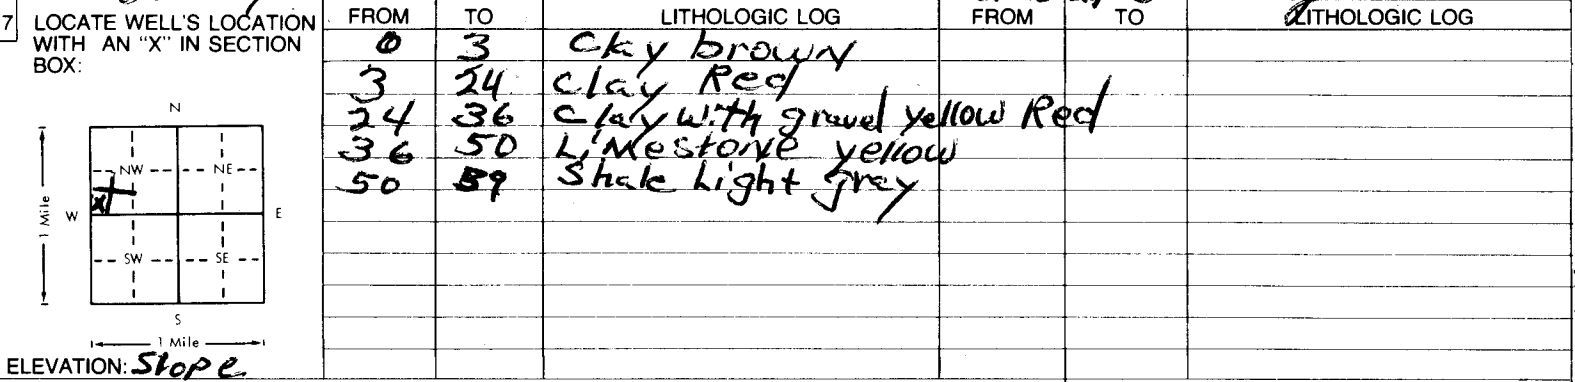 7 LOCATE WELL'S LOCATION
WITH AN "X" IN SECTION
BOX:
N
NW NE
X
1 Mile W E
SW SE
S
1 Mile
ELEVATION: Slope
FROM TO LITHOLOGIC LOG FROM TO LITHOLOGIC LOG
0 3 Clay brown
3 24 Clay Red
24 36 Clay with gravel yellow Red
36 50 Limestone yellow
50 59 Shale Light grey